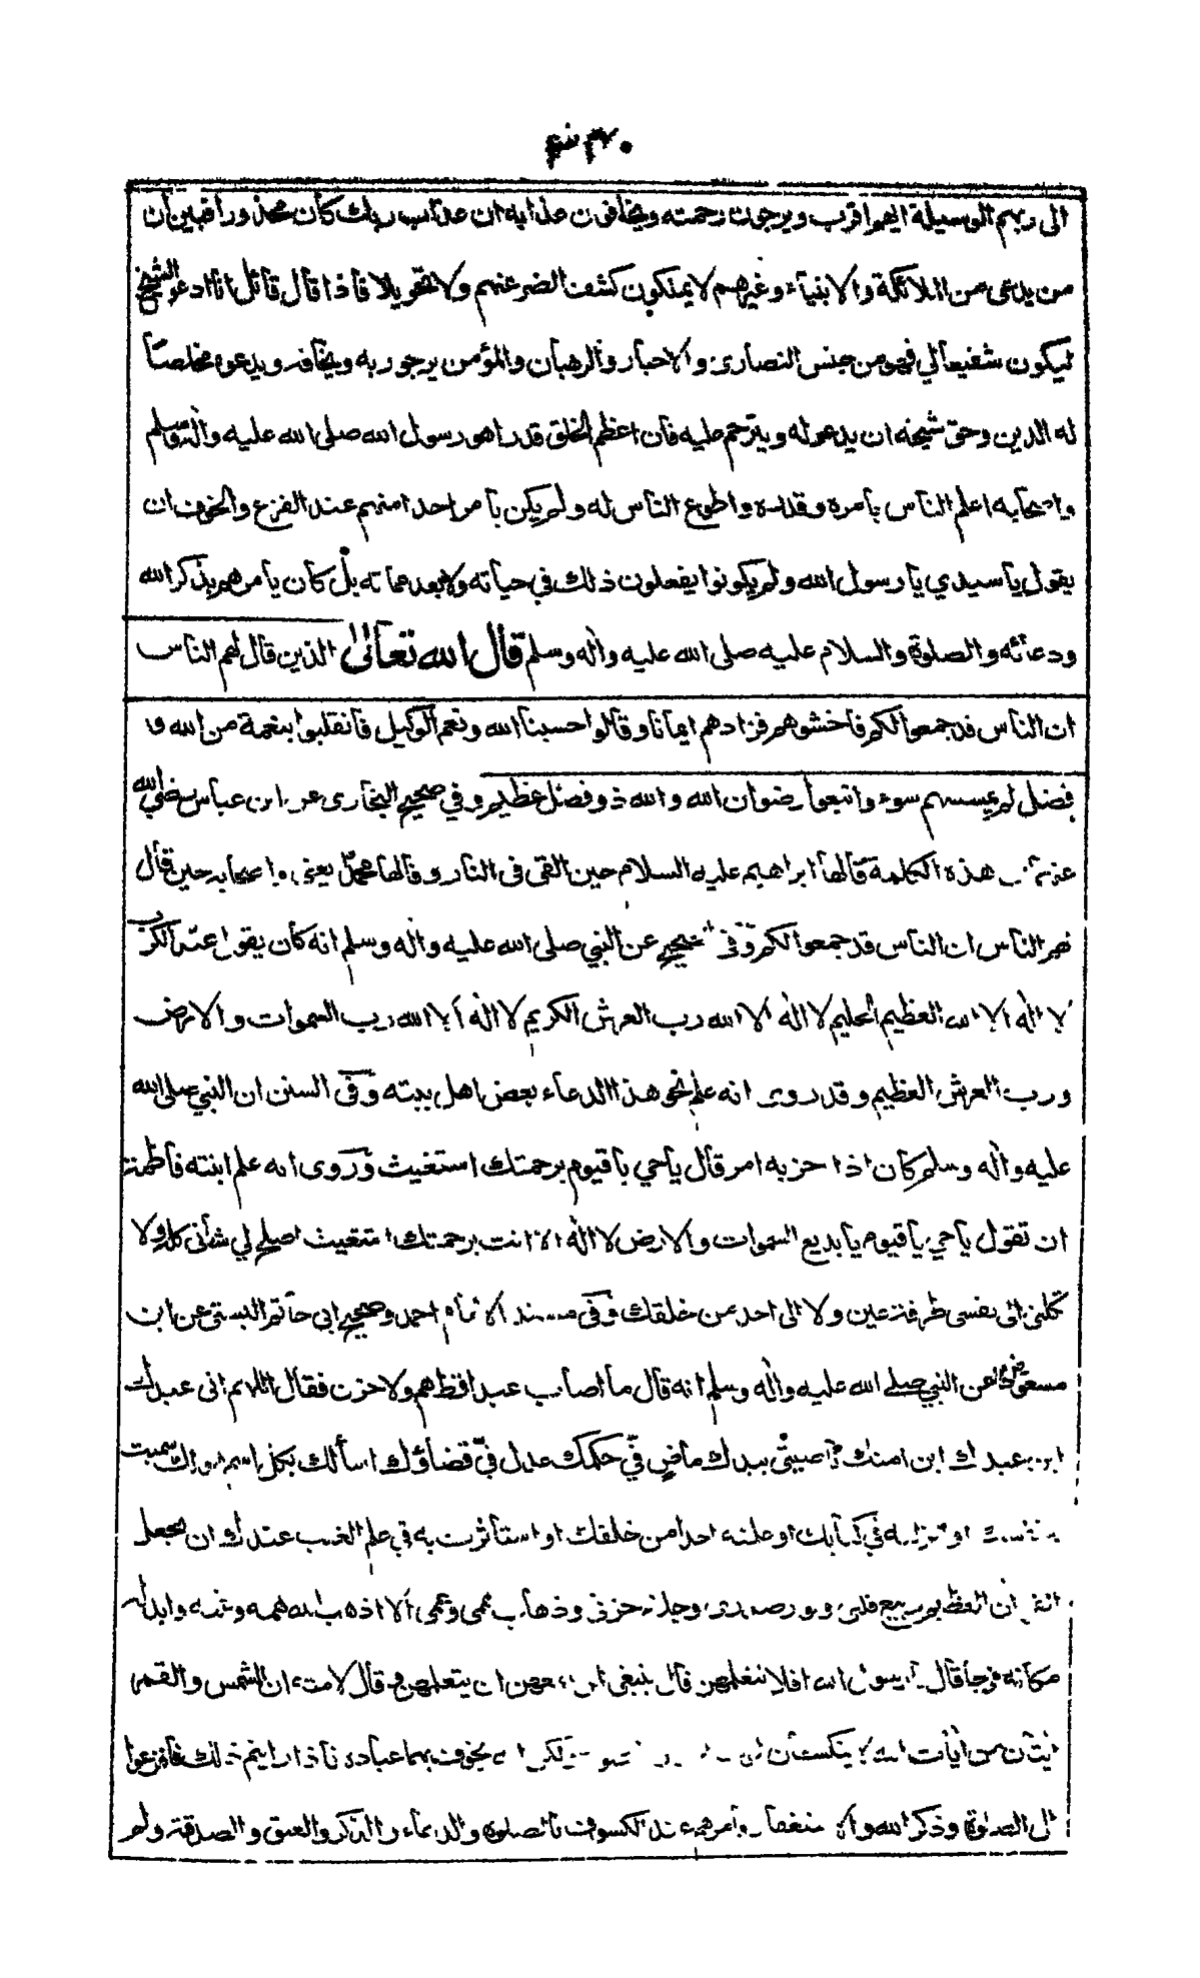 الى ربهم الوسيلة ايهم اقرب ويرجون رحمته ويخافون عذابه ان عذاب ربك كان محذورا فبين ان
من يدعى من الملائكة والانبياء وغيرهم لا يملكون كشف الضر عنهم ولا تحويلا فاذا قال قائل انا ادعو الشيخ
ليكون شفيعا لي فهو من جنس النصارى والاحبار والرهبان والمؤمن يرجو ربه ويخافه ويدعوه مخلصا
له الدين وحق شيخه ان يدعو له ويترحم عليه فان اعظم الخلق قدرا هو رسول الله صلى الله عليه واله وسلم
واصحابه اعلم الناس بامره وقدره واطوع الناس له ولم يكن يأمر احدا منهم عند الفزع والخوف ان
يقول يا سيدي يا رسول الله ولم يكونوا يفعلون ذلك في حياته ولا بعد مماته بل كان يأمرهم بذكر الله
ودعائه والصلوة والسلام عليه صلى الله عليه واله وسلم قال الله تعالى الذين قال لهم الناس
ان الناس قد جمعوا لكم فاخشوهم فزادهم ايمانا وقالوا حسبنا الله ونعم الوكيل فانقلبوا بنعمة من الله و
فضل لم يمسسهم سوء واتبعوا رضوان الله والله ذو فضل عظيم وفي صحيح البخاري عن ابن عباس رضي الله
عنه هذه الكلمة قالها ابراهيم عليه السلام حين القى فى النار وقالها محمد يعنى واصحابه حين قال
لهم الناس ان الناس قد جمعوا لكم وفى الصحيح عن النبي صلى الله عليه واله وسلم انه كان يقول عند الكرب
لا اله الا الله العظيم الحليم لا اله الا الله رب العرش الكريم لا اله الا الله رب السموات والارض
ورب العرش العظيم وقد روى انه علم نحو هذا الدعاء بعض اهل بيته وفى السنن ان النبي صلى الله
عليه واله وسلم كان اذا حزبه امر قال يا حي يا قيوم برحمتك استغيث وروى انه علم ابنته فاطمة
ان تقول يا حي يا قيوم يا بديع السموات والارض لا اله الا انت برحمتك استغيث اصلح لي شأنى كله ولا
تكلنى الى نفسى طرفة عين ولا الى احد من خلقك وفى مسند الامام احمد وصحيح ابي حاتم البستى عن ابن
مسعود رض عن النبي صلى الله عليه واله وسلم انه قال ما اصاب عبدا قط هم ولا حزن فقال اللهم انى عبدك
ابن عبدك ابن امتك ناصيتي بيدك ماض في حكمك عدل في قضاؤك اسألك بكل اسم هو لك سميت
به نفسك او انزلته في كتابك او علمته احدا من خلقك او استأثرت به في علم الغيب عندك ان تجعل
القران العظيم ربيع قلبى ونور صدرى وجلاء حزنى وذهاب همى وغمى الا اذهب الله همه وغمه وابدله
مكانه فرجا قال يا رسول الله افلا نتعلمهن قال ينبغى لمن سمعهن ان يتعلمهن وقال لامته ان الشمس والقمر
ايتان من ايات الله لا ينكسفان يخوف بهما عباده فاذا رايتم ذلك فافزعوا
الى الصلوة وذكر الله والاستغفار وامرهم عند الكسوف بالصلوة والدعاء والذكر والعتق والصدقة ولم